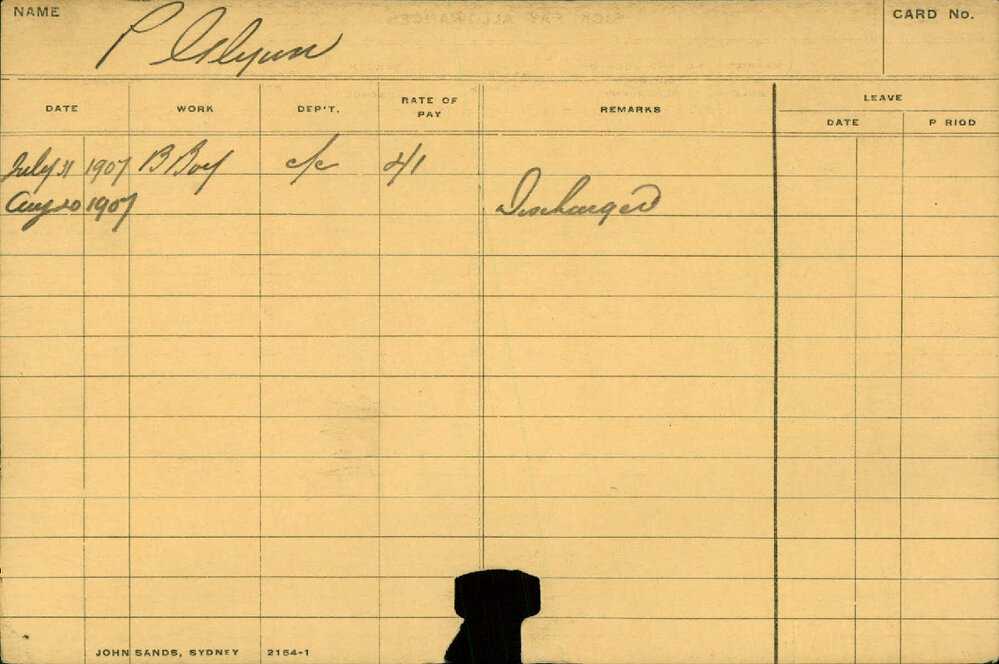 NAME
P Glynn
CARD No.
DATE WORK DEP'T. RATE OF PAY REMARKS LEAVE
DATE P RIOD
July 31 1907 B Boy c/c 4/1
Aug 20 1907 Discharged
JOHN SANDS, SYDNEY 2154-1